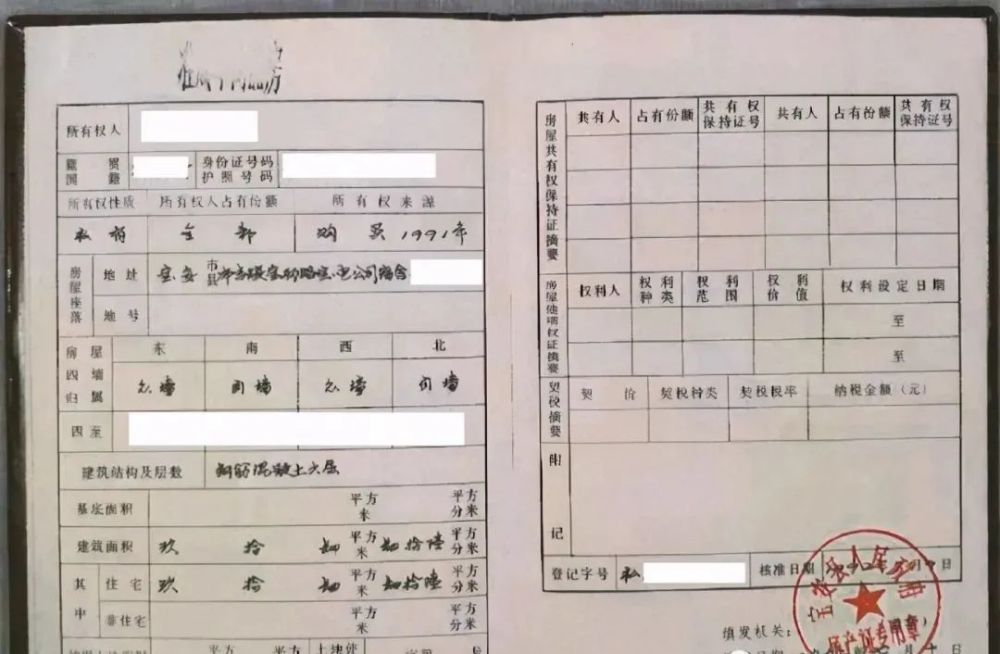 所有权人
籍贯
国籍
身份证号码
护照号码
所有权性质 所有权人占有份额 所有权来源
私有 全部 购买 1991年
房屋座落
地址 宝安 市县
地号
房屋四墙归属
东 南 西 北
公墙
四至
建筑结构及层数 钢筋混凝土六层
基底面积 平方米 平方分米
建筑面积 玖 拾 平方米 拾陆 平方分米
其中
住宅 玖 拾 平方米 拾陆 平方分米
非住宅 平方米 平方分米
平方
房屋共有权保持证摘要
共有人 占有份额 共有权保持证号 共有人 占有份额 共有权保持证号
房屋他项权证摘要
权利人 权利种类 权利范围 权利价值 权利设定日期
至
至
契税摘要
契价 契税种类 契税税率 纳税金额（元）
附记
登记字号 私 核准日期
填发机关：
房产证专用章